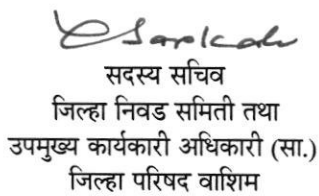 सदस्य सचिव
जिल्हा निवड समिती तथा
उपमुख्य कार्यकारी अधिकारी (सा.)
जिल्हा परिषद वाशिम